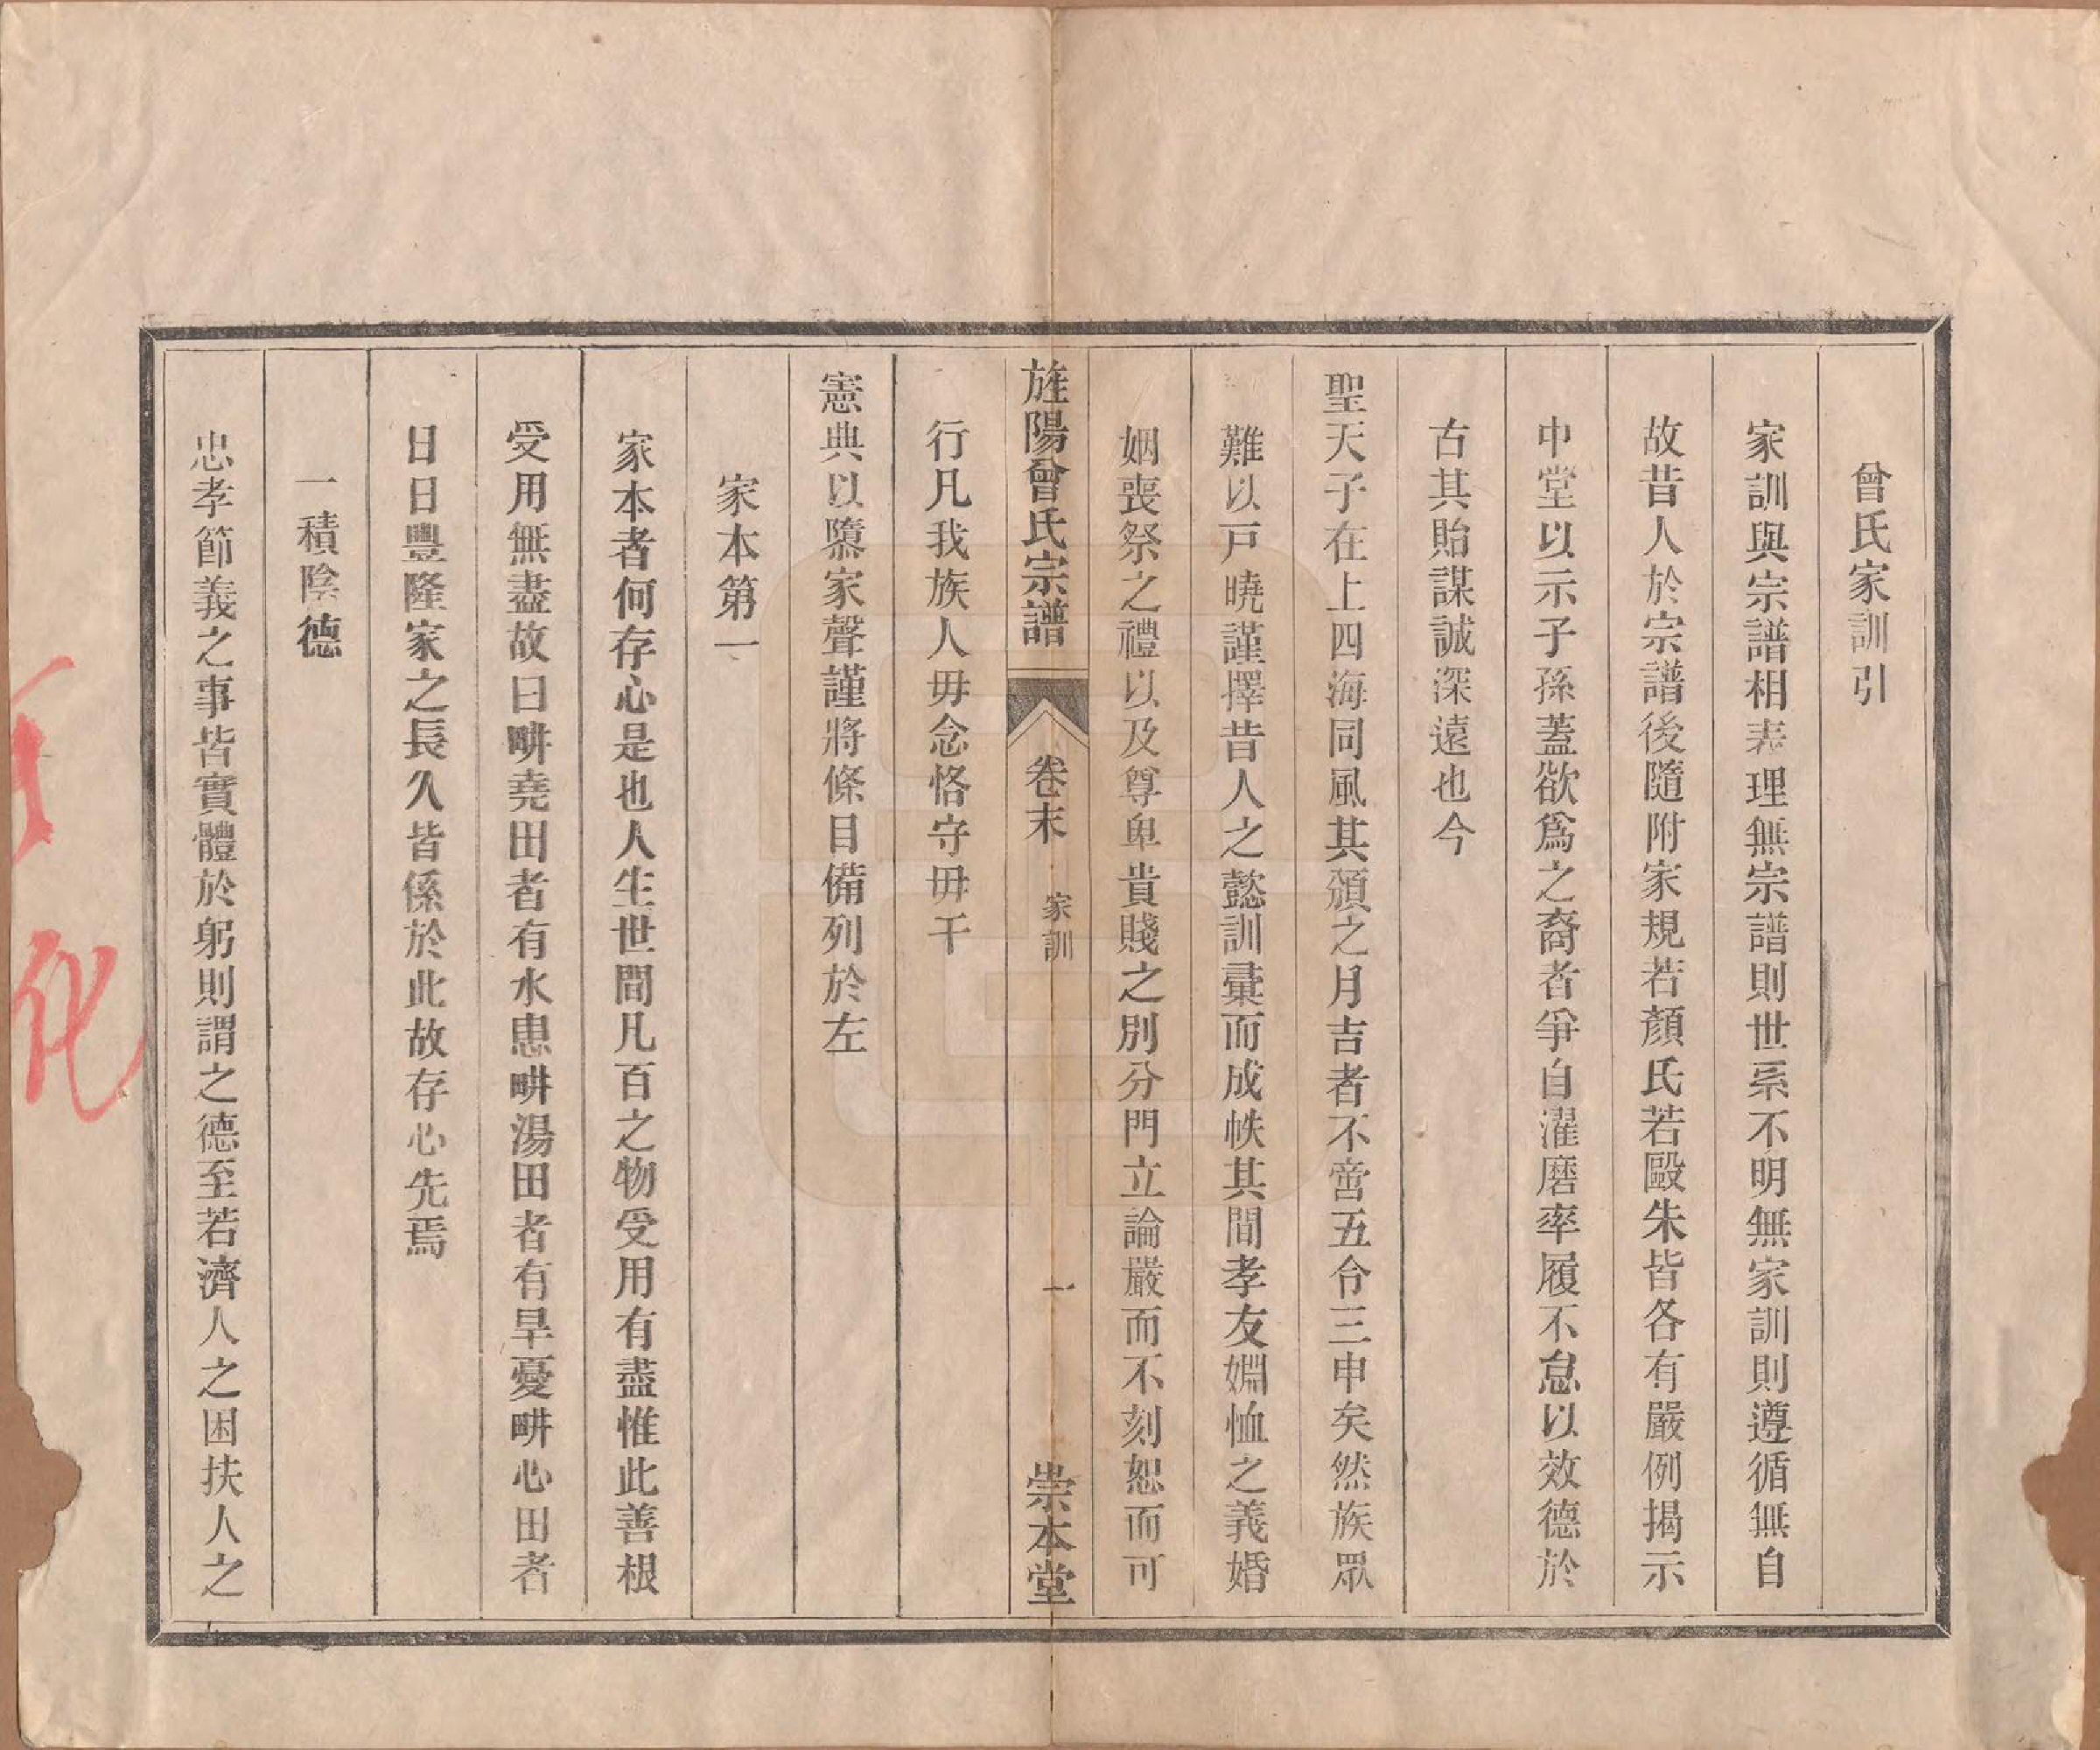 曾氏家訓引
家訓與宗譜相表理無宗譜則世系不明無家訓則遵循無自
故昔人於宗譜後隨附家規若顏氏若毆朱皆各有嚴例揭示
中堂以示子孫蓋欲爲之裔者爭自濯磨率履不怠以效德於
古其貽謀誠深遠也今
聖天子在上四海同風其頒之月吉者不啻五令三申矣然族眾
難以戸曉謹擇昔人之懿訓彙而成帙其間孝友婣恤之義婚
姻喪祭之禮以及尊卑貴賤之別分門立論嚴而不刻恕而可
旌陽曾氏宗譜 卷末 家訓 一 崇本堂
行凡我族人毋念恪守毋干
憲典以隳家聲謹將條目備列於左
家本第一
家本者何存心是也人生世間凡百之物受用有盡惟此善根
受用無盡故曰畊堯田者有水患畊湯田者有旱憂畊心田者
日日豐隆家之長久皆係於此故存心先焉
一積陰德
忠孝節義之事皆實體於躬則謂之德至若濟人之困扶人之